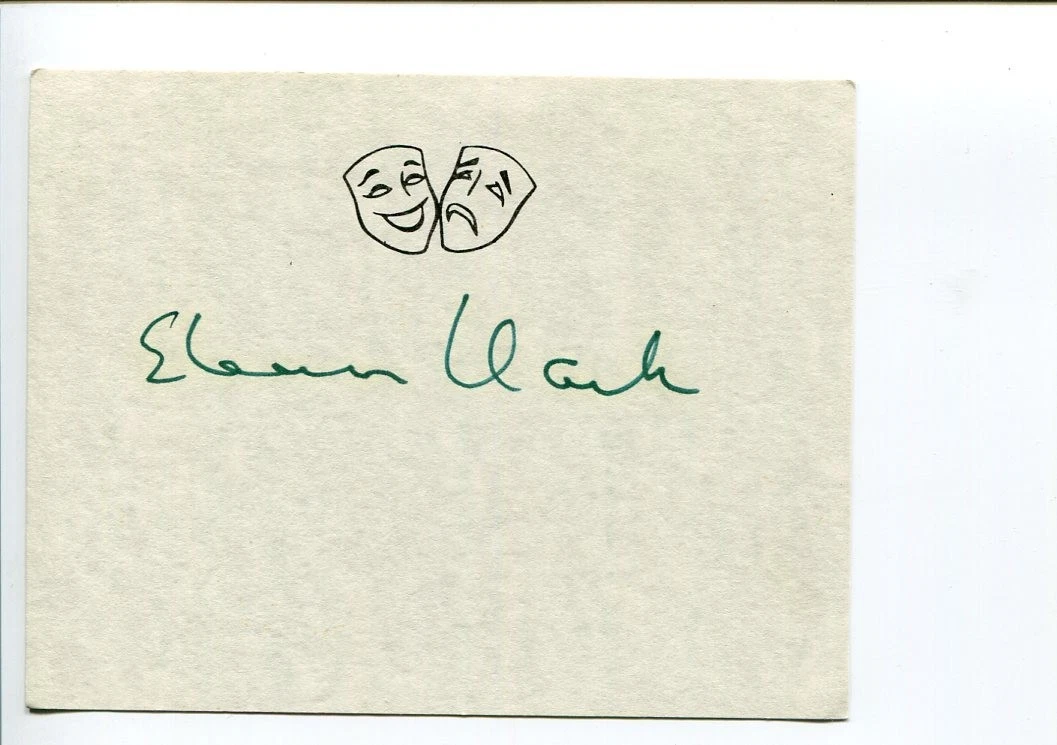 Eleanor Clark